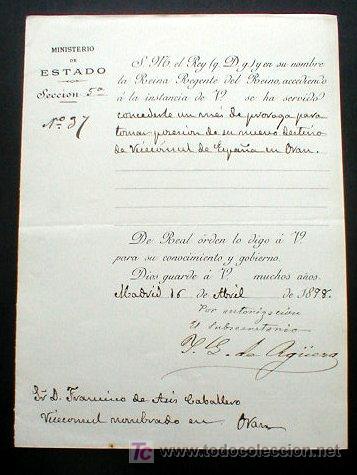 MINISTERIO
DE
ESTADO
Sección 5ª
Nº 37
S. M. el Rey (q. D. g.) y en su nombre
la Reina Regente del Reino, accediendo
á la instancia de V. se ha servido
concederle un mes de próroga para
tomar posesion de su nuevo destino
de Vicecónsul de España en Orán.
De Real órden lo digo á V.
para su conocimiento y gobierno.
Dios guarde á V. muchos años.
Madrid 16 de Abril de 1898.
Por autorizacion
El Subsecretario
de Agüera
Sr D. Francisco de Asis Caballero
Vicecónsul nombrado en Orán
todocoleccion.net